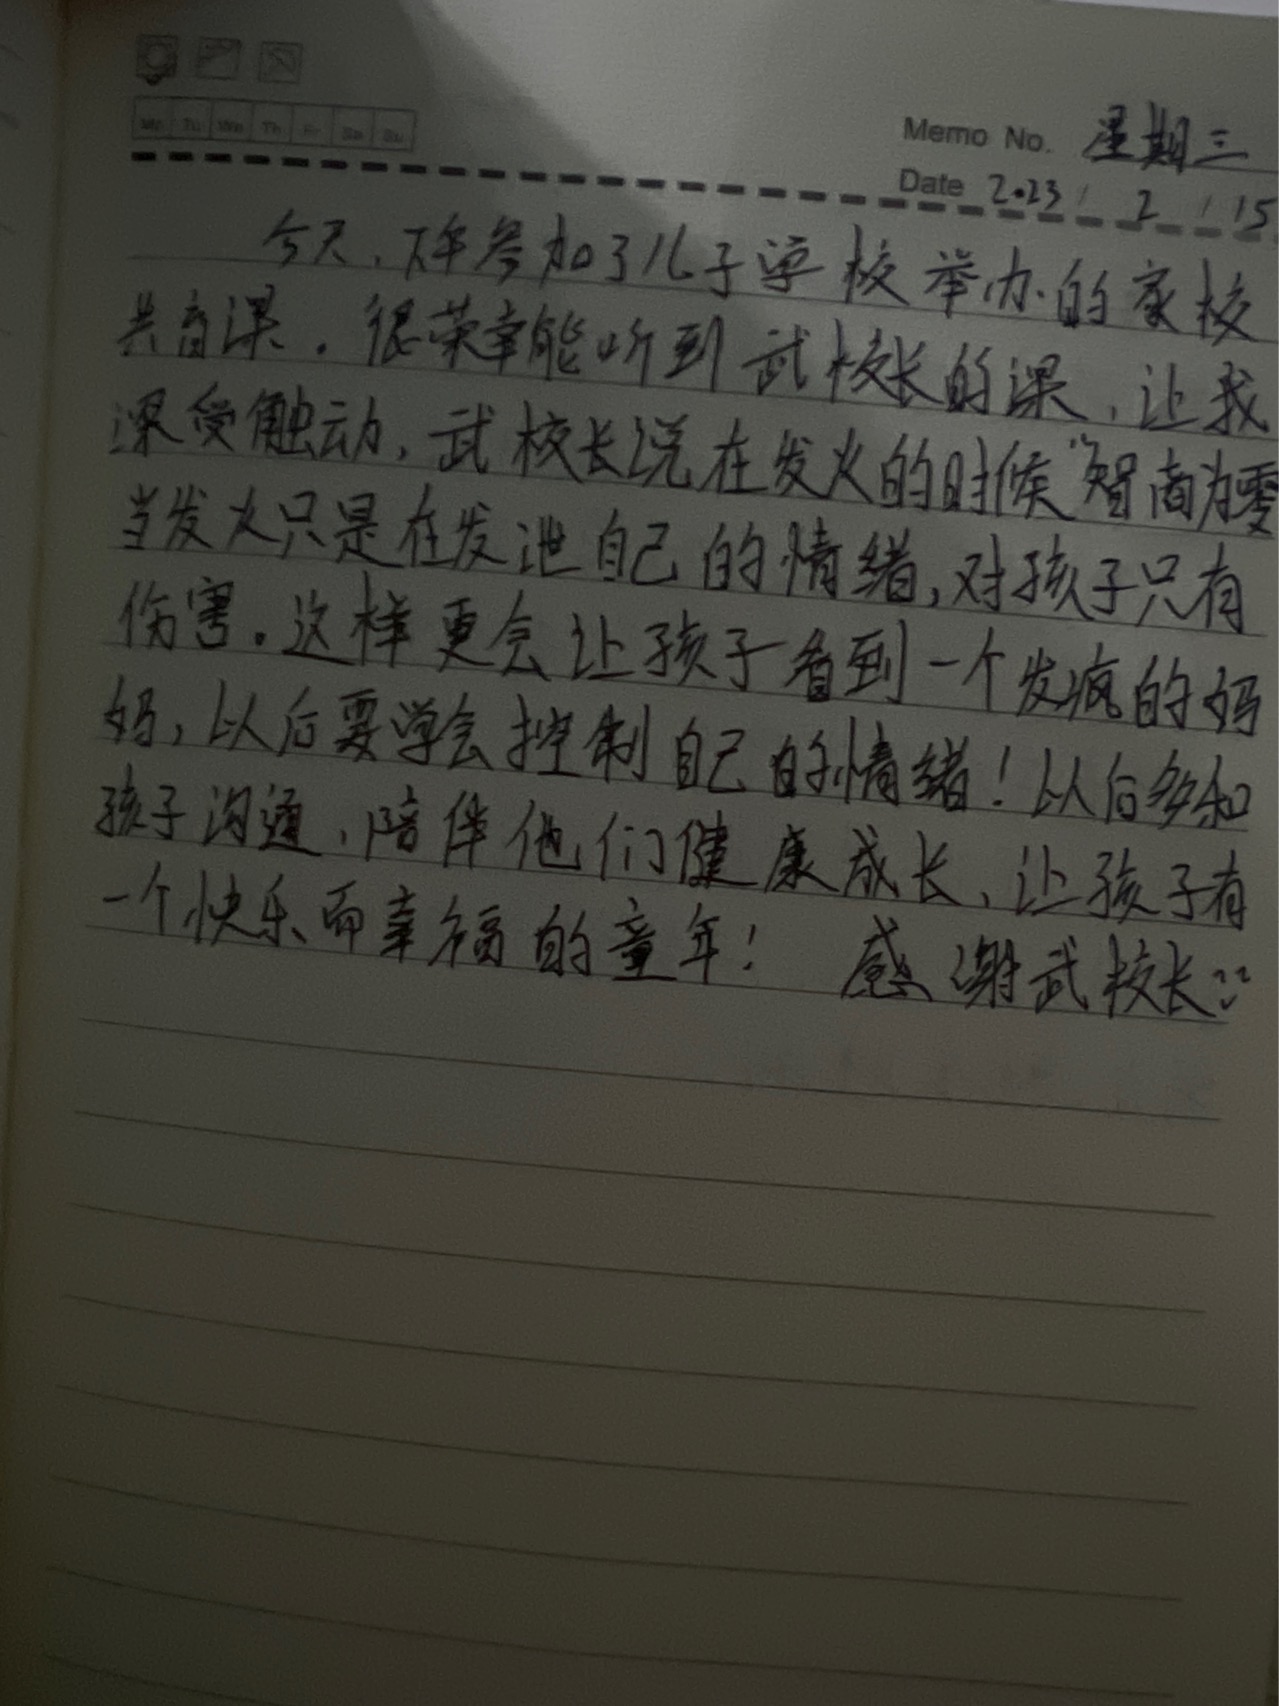 Mo Tu We Th Fr Sa Su
Memo No. 星期三
Date 2023 / 2 / 15
今天,下午参加了儿子学校举办的家校
共育课。很荣幸能听到武校长的课,让我
深受触动,武校长说在发火的时候“智商为零
当发火只是在发泄自己的情绪,对孩子只有
伤害。这样更会让孩子看到一个发疯的妈
妈,以后要学会控制自己的情绪!以后多和
孩子沟通,陪伴他们健康成长,让孩子有
一个快乐而幸福的童年! 感谢武校长